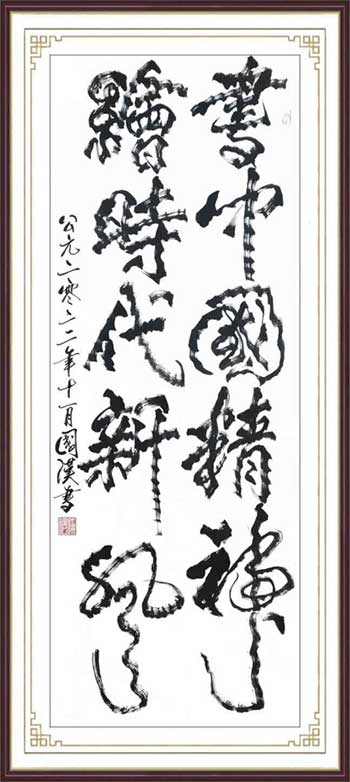 書中國精神
繪時代新風
公元二零二二年十一月國漢書